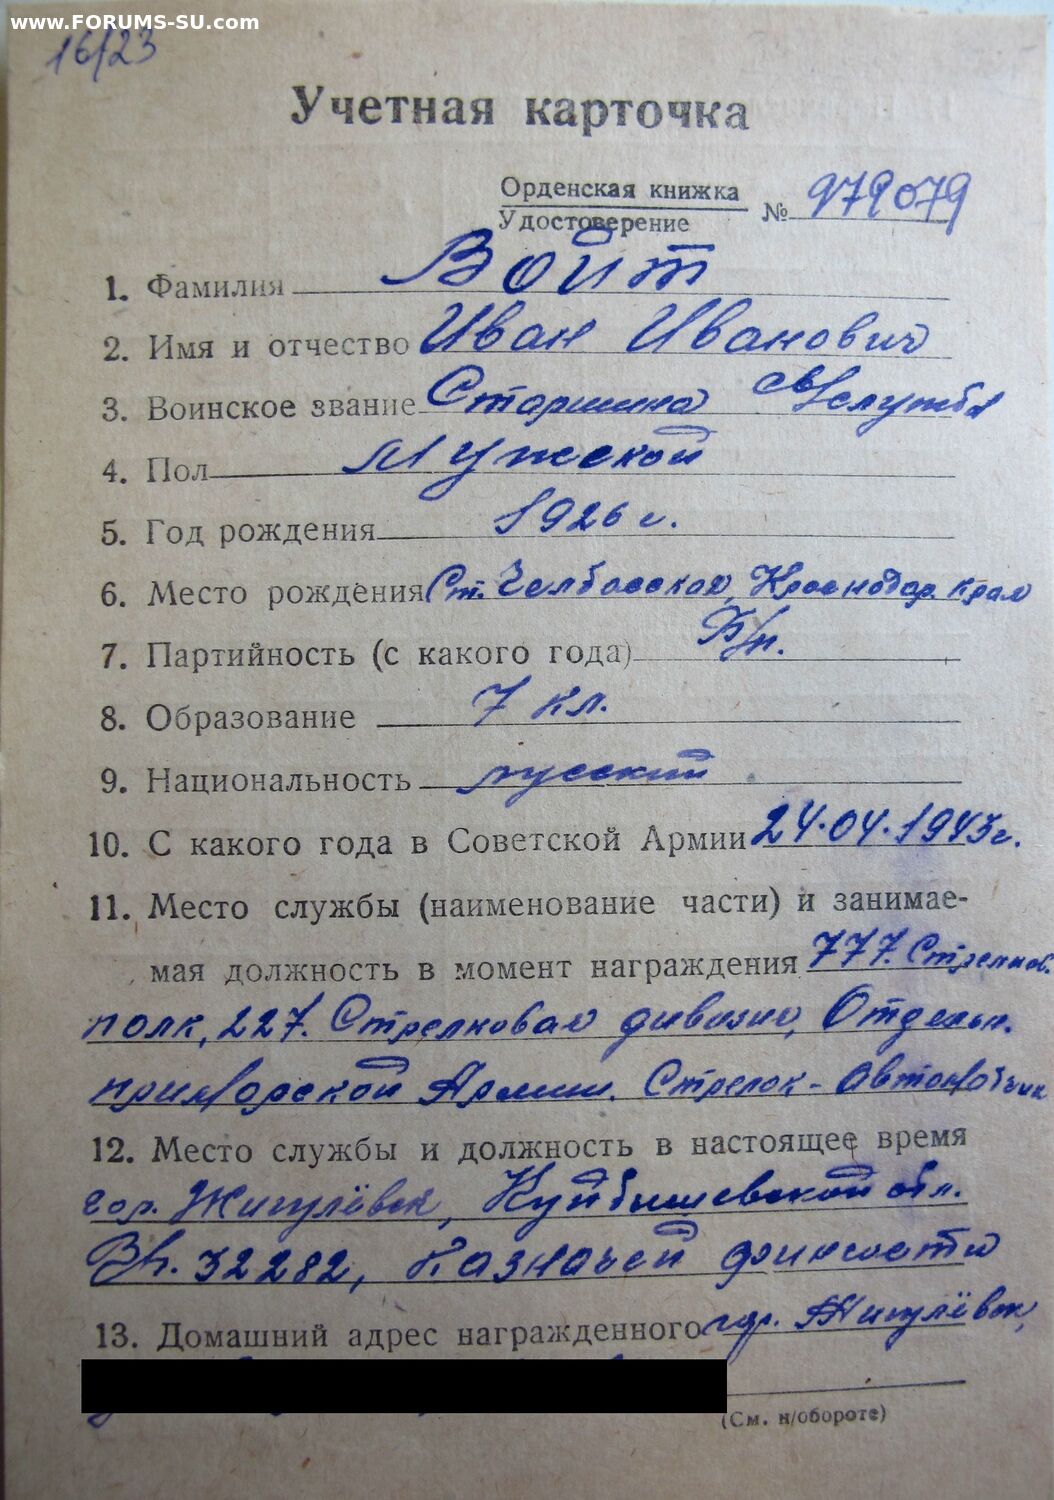 www.FORUMS-SU.com
16/23
Учетная карточка
Орденская книжка
Удостоверение
№ 979079
1. Фамилия Войт
2. Имя и отчество Иван Иванович
3. Воинское звание Старшина св/службы
4. Пол Мужской
5. Год рождения 1926 г.
6. Место рождения Ст. Челбасская, Краснодар. края
7. Партийность (с какого года) Б/п.
8. Образование 7 кл.
9. Национальность русский
10. С какого года в Советской Армии 24.04.1943г.
11. Место службы (наименование части) и занимае-
мая должность в момент награждения 777. Стрелков.
полк, 227. Стрелковая дивизия, Отдельн.
приморской Армии. Стрелок-Автоматчик
12. Место службы и должность в настоящее время
гор. Жигулёвск, Куйбышевской обл.
В/ч. 32282, Казначей финчасти
13. Домашний адрес награжденного гор. Жигулёвск,
(См. н/обороте)